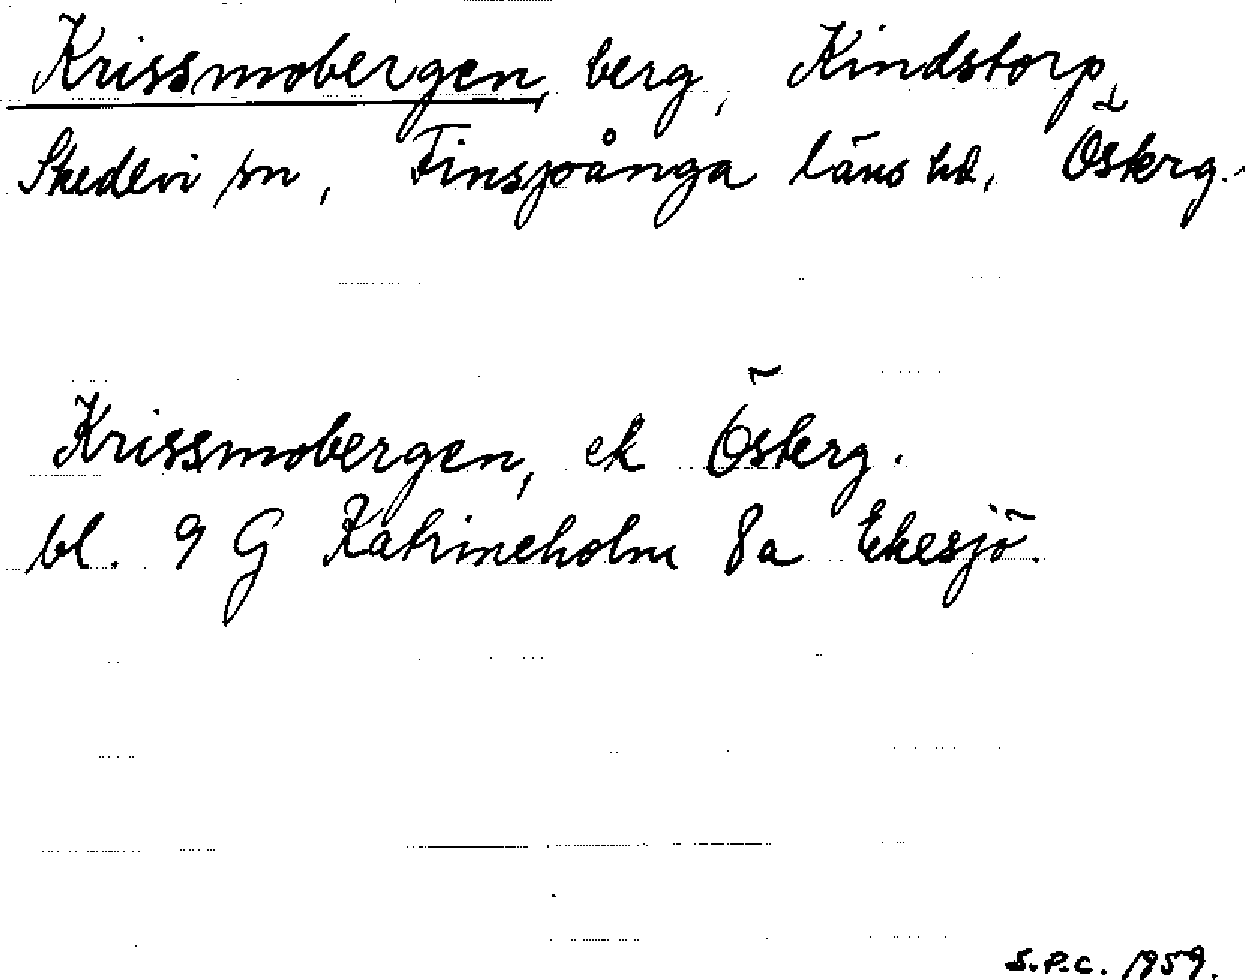 Krissmobergen, berg, Kindstorp,
Skedevi sn, Finspånga läns hd, Österg.
Krissmobergen, ek Österg.
bl. 9 G Katrineholm 8a Ekesjö.
S.P.C. 1959.